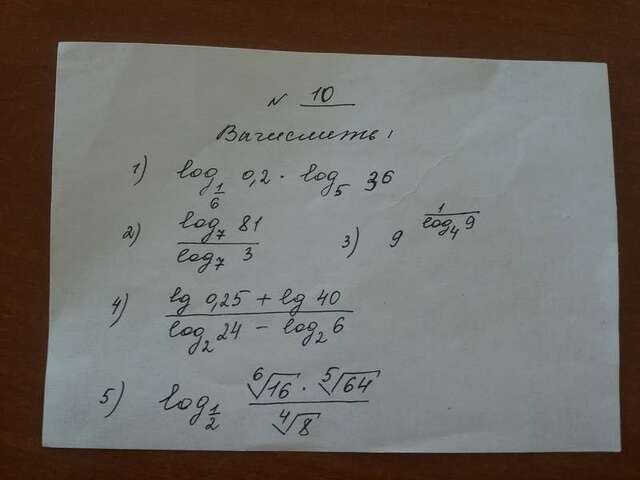 № 10
Вычислить:
1) log_{1/6} 0,2 · log_5 36
2) \frac{log_7 81}{log_7 3} 3) 9^{\frac{1}{log_4 9}}
4) \frac{lg 0,25 + lg 40}{log_2 24 - log_2 6}
5) log_{1/2} \frac{\sqrt[6]{16} · \sqrt[5]{64}}{\sqrt[4]{8}}